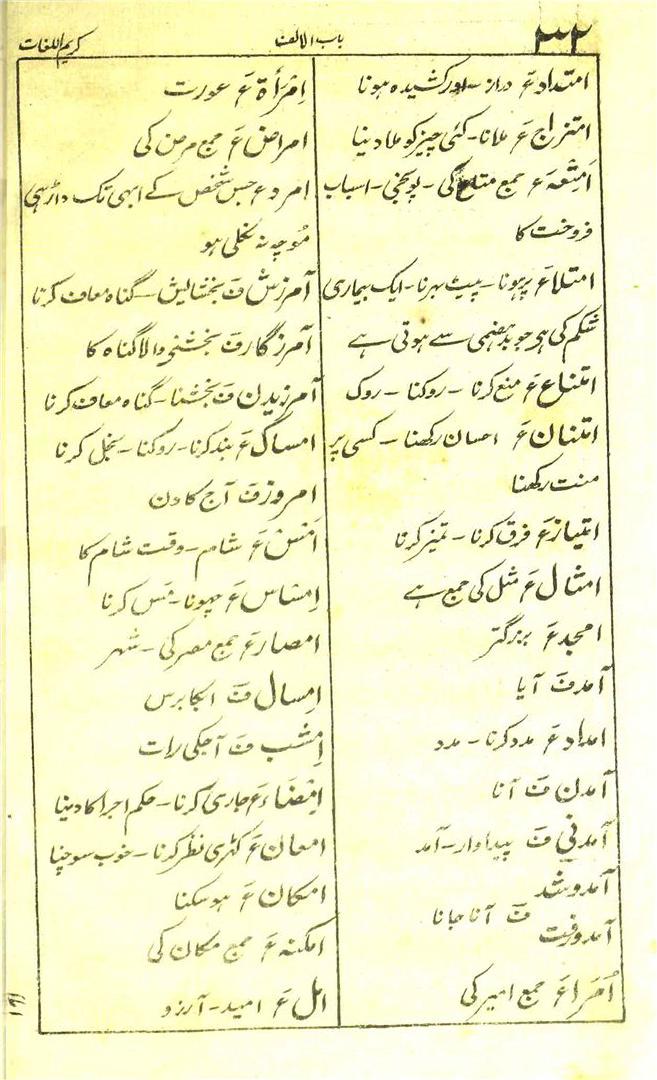 ۳۲
باب الالف
کریم اللغات
امتداد ع دراز - اور کشیدہ ہونا
امتزاج ع ملانا - کئی چیز کو ملا دینا
اَمتِعہ ع جمع متاع کی - پونجی - اسباب
فروخت کا
امتلاع پر ہونا - پیٹ بہرنا - ایک بیماری
شکم کی ہی جو بدہضمی سے ہوتی ہے
امتناع ع منع کرنا - روکنا - روک
امتنان ع احسان رکھنا - کسی پر
منت رکھنا
امتیاز ع فرق کرنا - تمیز کرنا
امثال ع مثل کی جمع ہے
امجد ع بزرگتر
آمد ف آیا
امداد ع مدد کرنا - مدد
آمدن ف آنا
آمدنی ف پیداوار - آمد
آمدوشد
آمدورفت ف آنا جانا
اُمَرَاء ع جمع امیر کی
اِمْرَأَة ع عورت
امراض ع جمع مرض کی
امرد ع جس شخص کے ابہی تک داڑہی
مُوچہ نہ نکلی ہو
آمرزش ف بخشایش - گناہ معاف کرنا
آمرزگار ف بخشنے والا گناہ کا
آمرزیدن ف بخشنا - گناہ معاف کرنا
امساک ع بند کرنا - روکنا - بخل کرنا
امروز ف آج کا دن
اَمس ع شام - وقت شام کا
اِمساس ع چہونا - مَس کرنا
امصار ع جمع مصر کی - شہر
اِمسال ف ابکا برس
اِمشب ف آجکی رات
اِمضاء ع جاری کرنا - حکم اجرا کا دینا
امعان ع گہری نظر کرنا - خوب سوچنا
امکان ع ہو سکنا
امکنہ ع جمع مکان کی
امل ع امید - آرزو